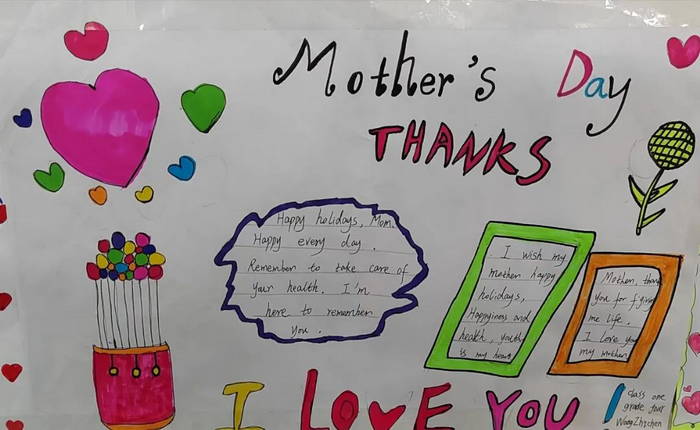 Mother's Day
THANKS
Happy holidays, Mom.
Happy every day.
Remember to take care of
your health. I'm
here to remember
you.
I wish my
mother happy
holidays,
Happiness and
health, youth
is my heart
Mother, thank
you for
me life.
I love you
my mother
I LOVE YOU !
class one
grade four
WangZhichen